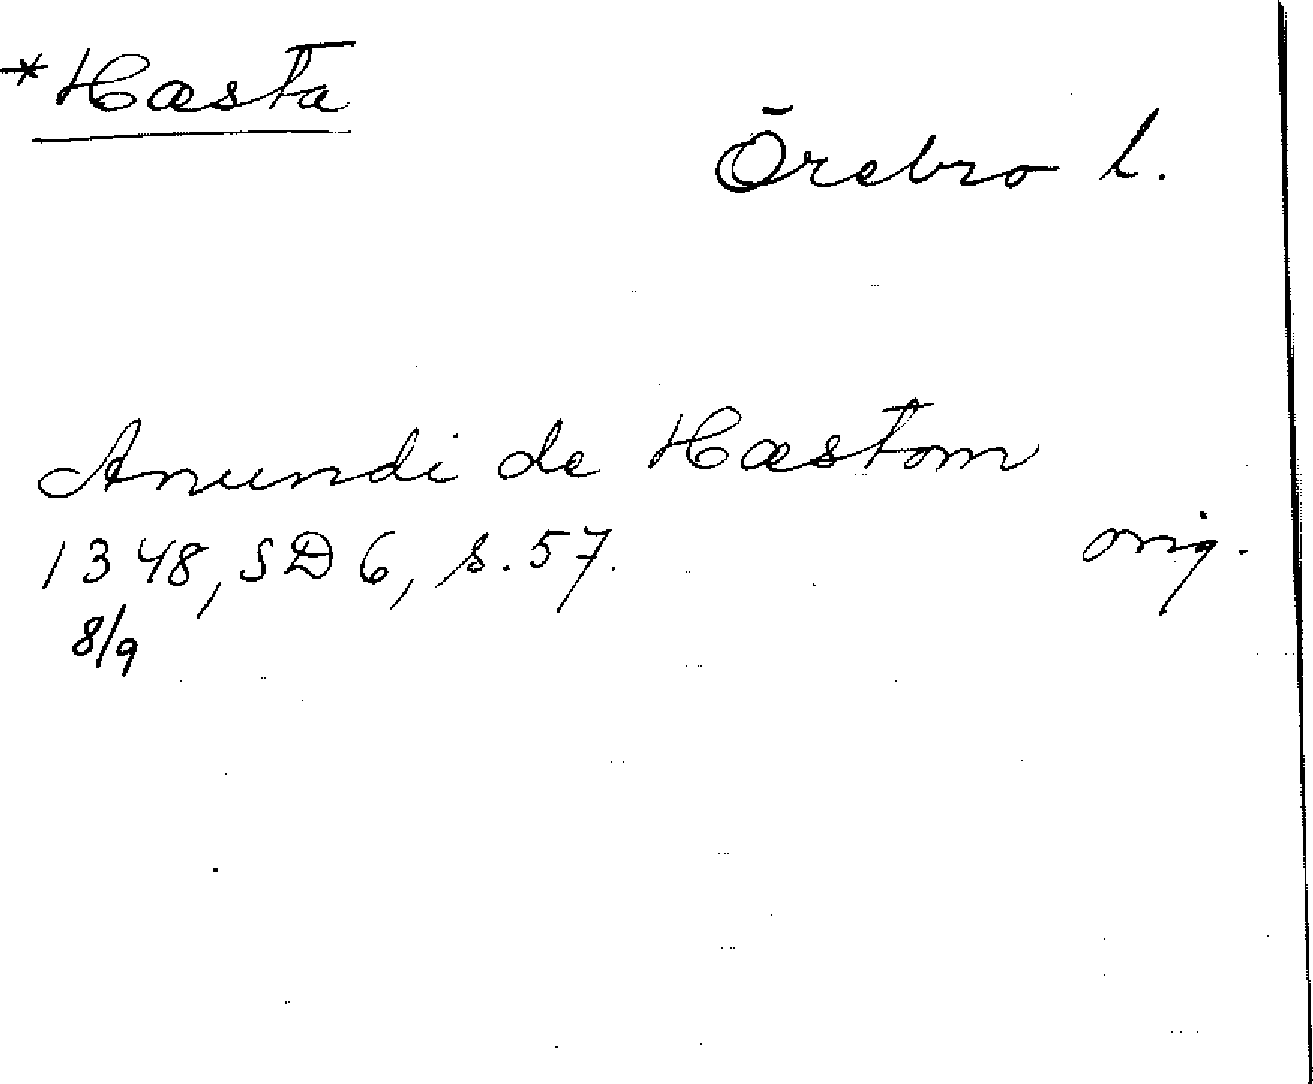 *Hæsta
Örebro l.
Anundi de Hæstom
1348, SD 6, s. 57. orig.
8/9